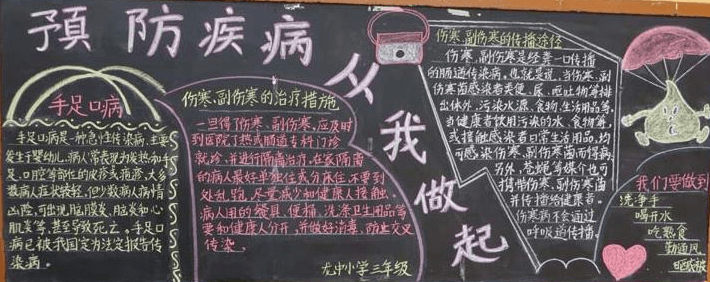 预防疾病从我做起
手足口病
手足口病是一种急性传染病,主要
发生于婴幼儿,病人常表现为发热和手
足、口腔等部位的皮疹或疱疹,大多
数病人症状较轻,但少数病人病情
凶险,可出现脑膜炎、脑炎和心
肌炎等,甚至导致死亡。手足口
病已被我国定为法定报告传
染病。
伤寒、副伤寒的治疗措施
一旦得了伤寒、副伤寒,应及时
到医院了热或肠道专科门诊
就诊,并进行隔离治疗,在家隔离
的病人最好单独住或分床住,不要到
处乱跑,尽量减少和健康人接触,
病人用的餐具、便桶、洗涤卫生用品等
要和健康人分开,并做好消毒,防止交叉
传染。
尤中小学三年级
伤寒、副伤寒的传播途径
伤寒、副伤寒是经粪一口传播
的肠道传染病。也就是说,当伤寒、副
伤寒菌感染者粪便、尿、呕吐物等排
出体外,污染水源、食物、生活用品等,
当健康者饮用污染的水、食物等,
或接触感染者日常生活用品,均
可感染伤寒、副伤寒菌而得病。
另外,苍蝇等媒介也可
携带伤寒、副伤寒菌
并传播给健康者。
伤寒病不会通过
呼吸道传播。
我们要做到
洗净手
喝开水
吃熟食
勤通风
晒衣被